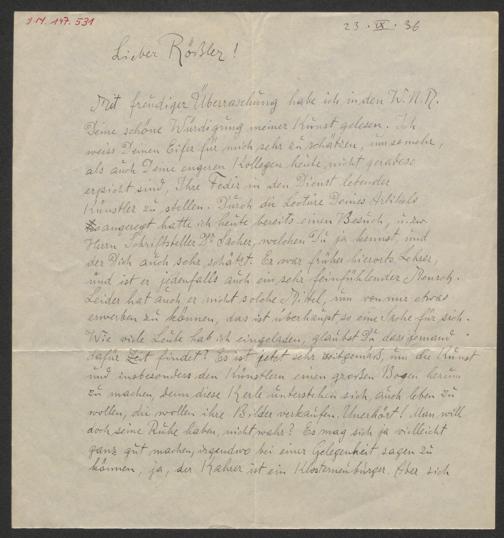 J.N. 147.531
23. IX. 36
Lieber Rößler!
Mit freudiger Überraschung habe ich in den W.N.N.
Deine schöne Würdigung meiner Kunst gelesen. Ich
weiss Deinen Eifer für mich sehr zu schätzen, umsomehr,
als auch Deine engeren Kollegen heute nicht geradeso
erpicht sind, Ihre Feder in den Dienst lebender
Künstler zu stellen. Durch die Lectüre Deines Artikels
angeregt hatte ich heute bereits einen Besuch, u. zw.
Herrn Schriftsteller Dr. Lacher, welchen Du ja kennst, und
der Dich auch sehr schätzt. Er war früher hierorts Lehrer,
und ist er jedenfalls auch ein sehr feinfühlender Mensch.
Leider hat auch er nicht solche Mittel, um von mir etwas
erwerben zu können, das ist überhaupt so eine Sache für sich.
Wie viele Leute hab ich eingeladen, glaubst Du dass jemand
dafür Zeit findet? Es ist jetzt sehr zeitgemäß, um die Kunst
und insbesonders den Künstlern einen großen Bogen herum
zu machen, denn diese Kerle unterstehen sich, auch leben zu
wollen, die wollen ihre Bilder verkaufen. Unerhört! Man will
doch seine Ruhe haben, nicht wahr? Es mag sich ja vielleicht
ganz gut machen, irgendwo bei einer Gelegenheit sagen zu
können, ja, der Kahrer ist ein Klosterneuburger. Aber sich